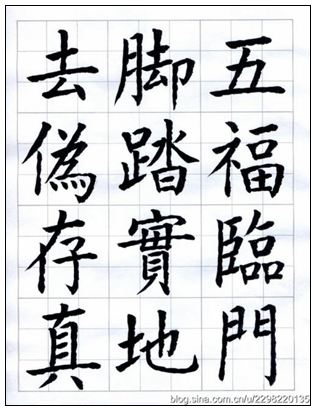 五福臨門
脚踏實地
去偽存真
blog.sina.com.cn/u/2298220135